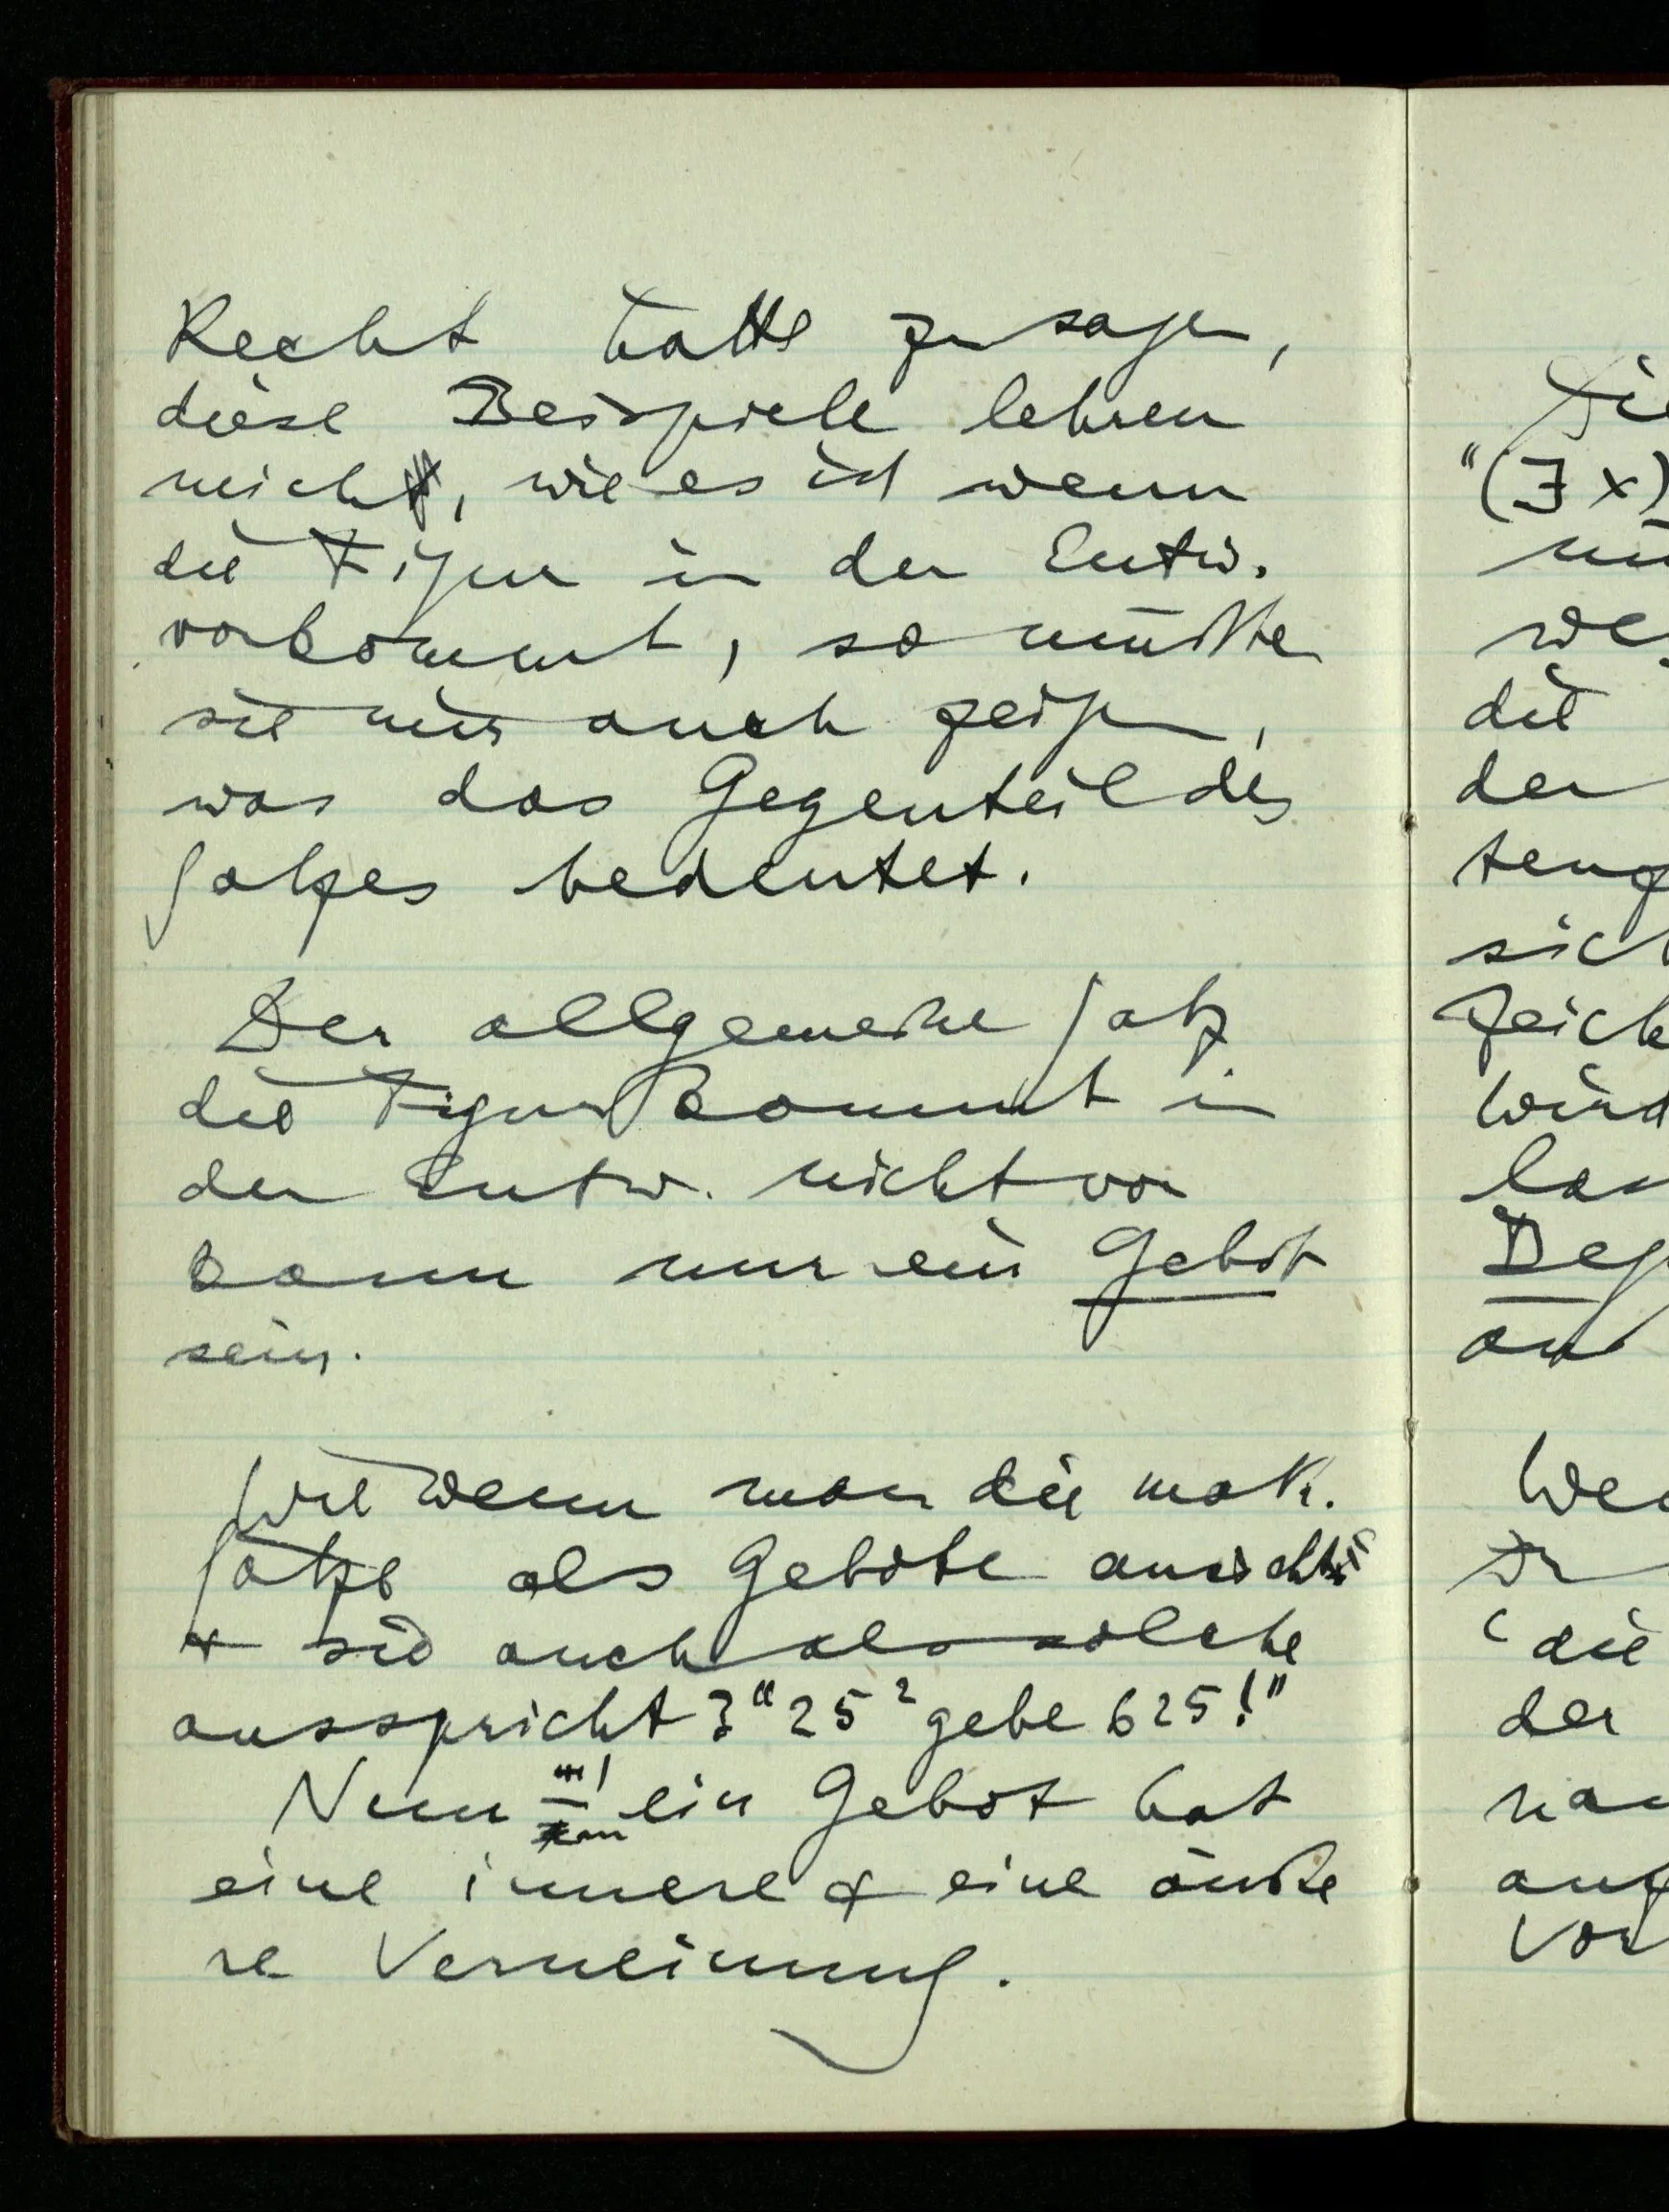 Recht hätte zu sagen,
diese Beispiele lehren
mich, wie es ist wenn
die Figur in der Entw.
vorkommt, so müßten
sie mir auch zeigen,
was das Gegenteil des
Satzes bedeutet.
Der allgemeine Satz
die Figur kommt in
der Entw. nicht vor
kann nur ein Gebot
sein.
Wie wenn man die math.
Sätze als Gebote ansieht
& sie auch als solche
ausspricht? "25² gebe 625!"
Nun ein Gebot hat
eine innere & eine äuße
re Verneinung.
Die
"(∃x)
die
der
sich
Zeich
wird
an
die
der